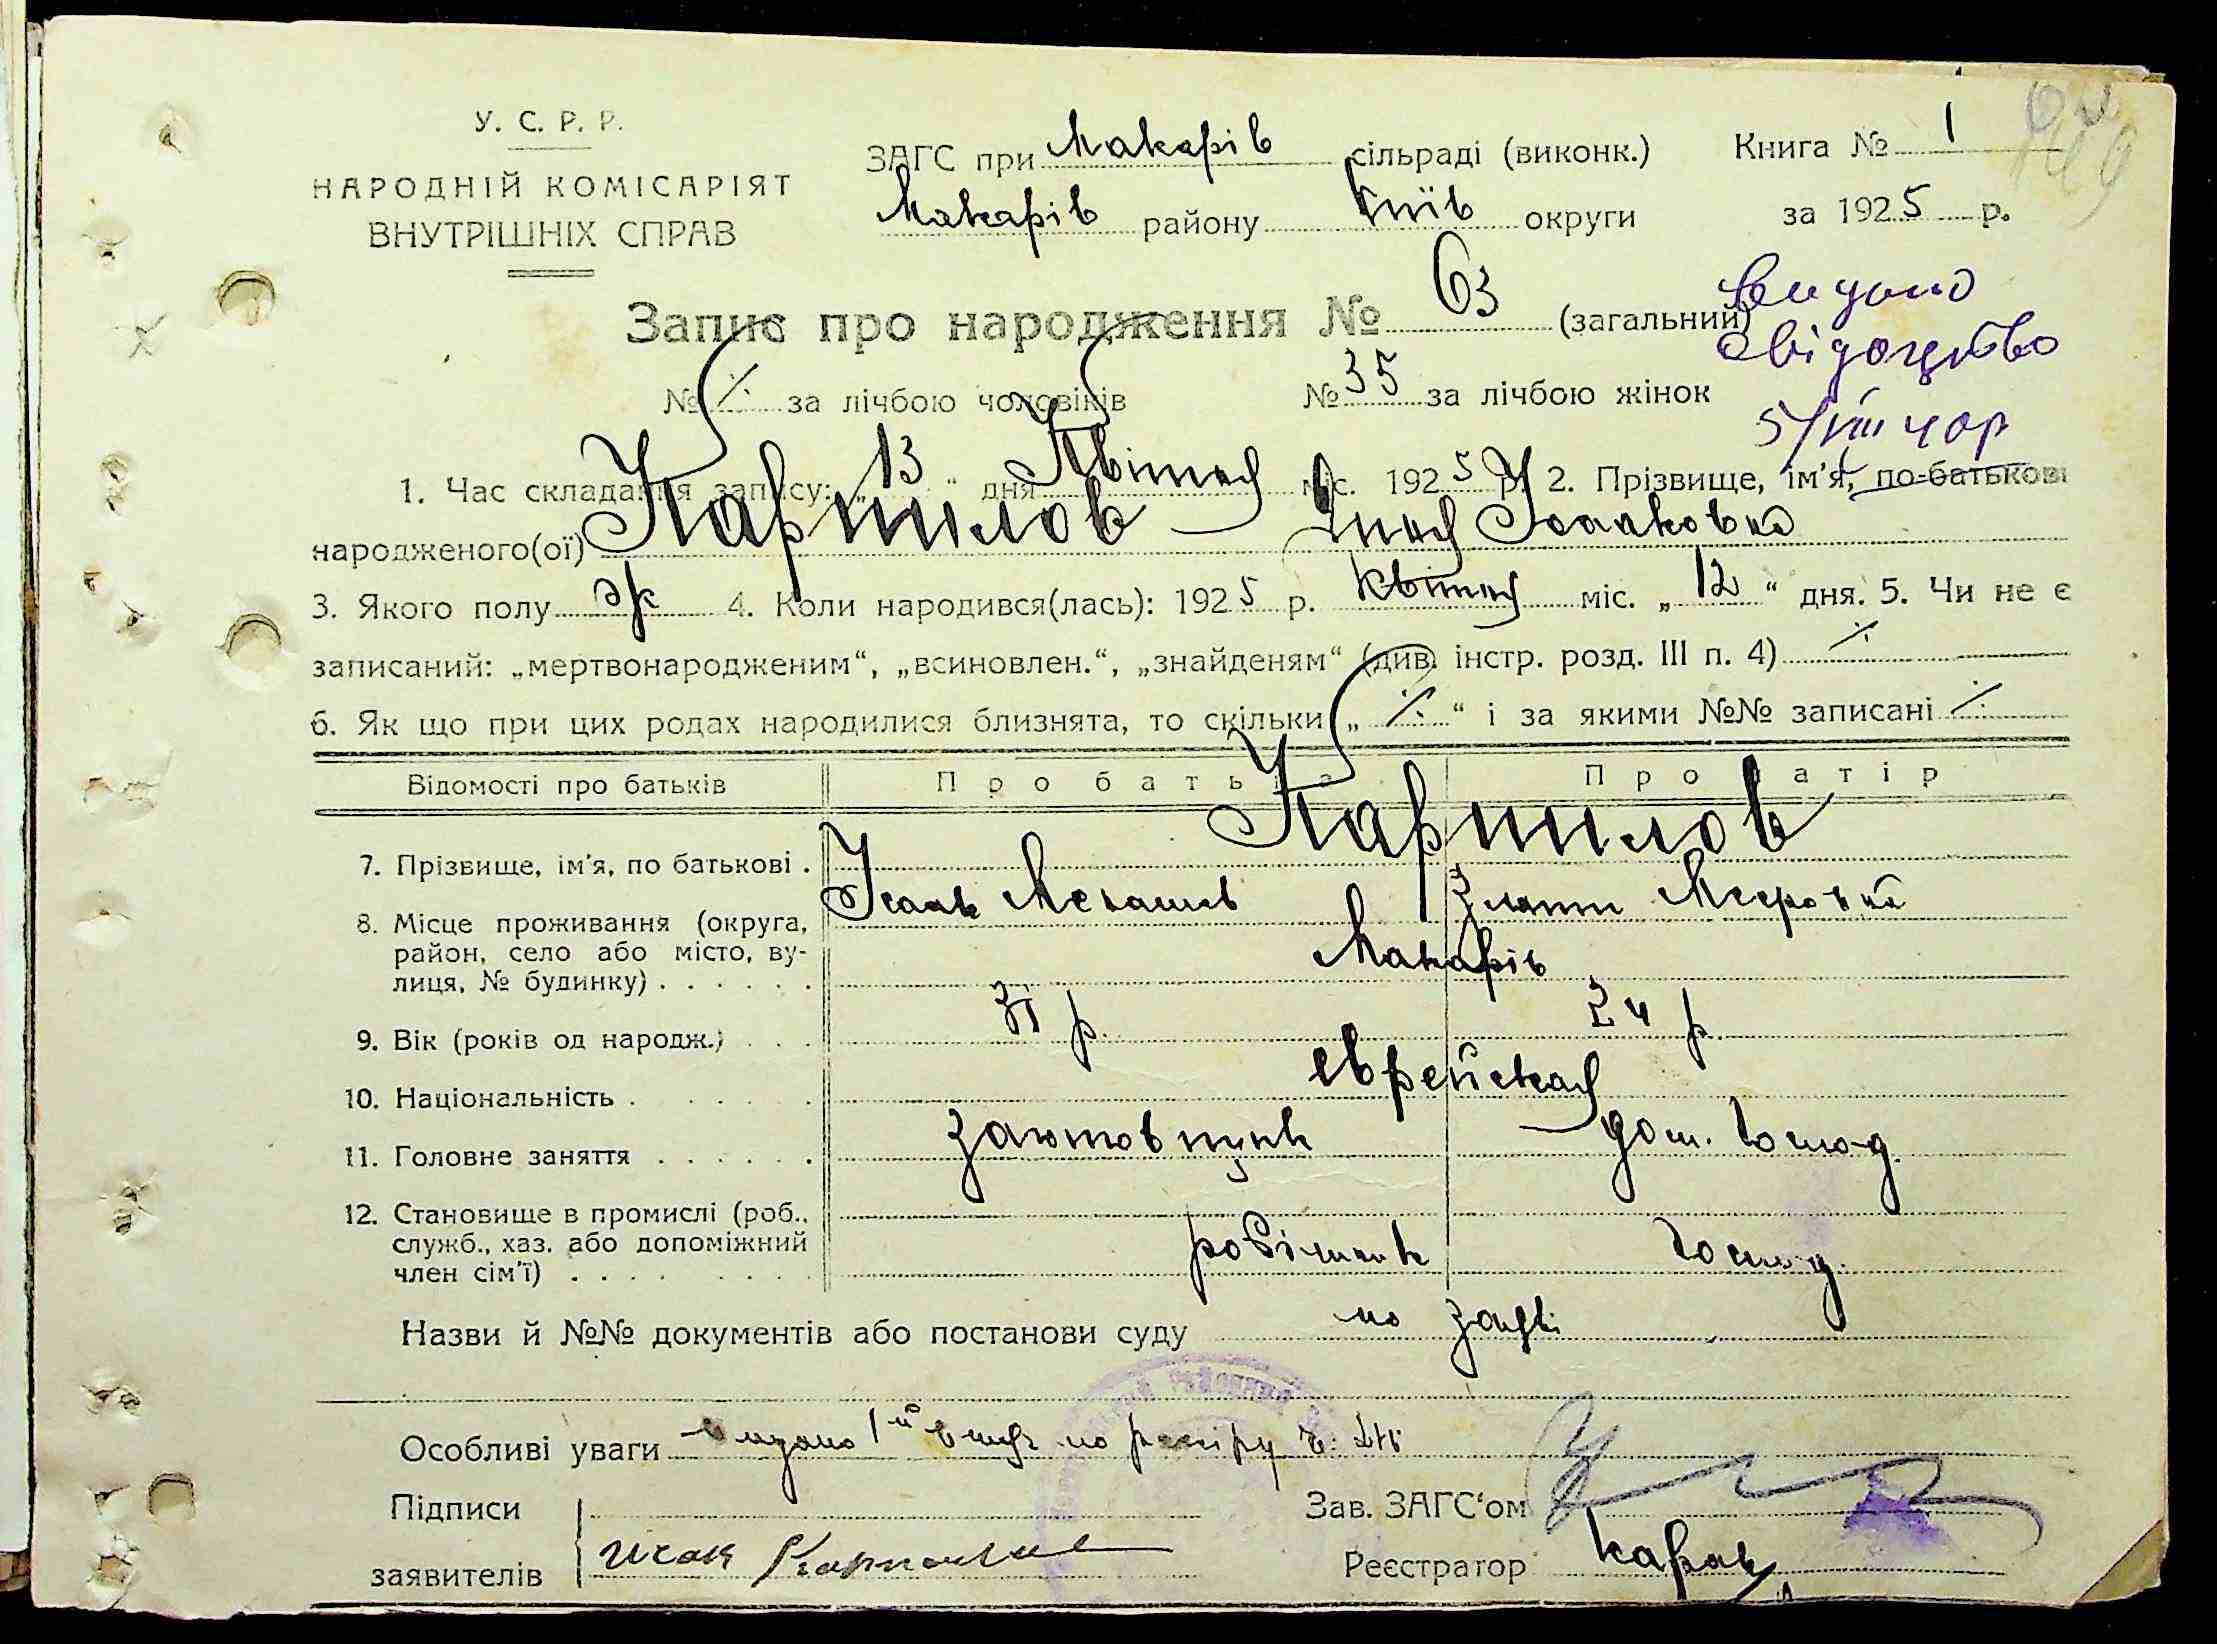 У. С. Р. Р.
НАРОДНІЙ КОМІСАРІЯТ
ВНУТРІШНІХ СПРАВ
ЗАГС при Макарів сільраді (виконк.) Книга № 1
Макарів району Київ округи за 1925 р.
Запис про народження № 63 (загальний)
Видано
свідоцтво
№ ·/· за лічбою чоловіків № 35 за лічбою жінок
1. Час складання запису: „13“ дня Квітня міс. 1925 р. 2. Прізвище, ім'я, по-батькові
народженого(ої) Исааковна
3. Якого полу ж 4. Коли народився(лась): 1925 р. квітня міс. „12“ дня. 5. Чи не є
записаний: „мертвонародженим“, „всиновлен.“, „знайденям“ (див. інстр. розд. III п. 4) ·/·
6. Як що при цих родах народилися близнята, то скільки „·/·“ і за якими №№ записані ·/·
Відомості про батьків Про батька Про матір
7. Прізвище, ім'я, по батькові .
Исаак Мееровна
8. Місце проживання (округа,
район, село або місто, ву-
лиця, № будинку) . . . . . . Макарів
9. Вік (років од народж.) . . . 31 р. 24 р.
10. Національність . . . . . . . еврейская
11. Головне заняття . . . . . .
12. Становище в промислі (роб.,
служб., хаз. або допоміжний
член сім'ї) . . . . . . . . . робітник господ.
Назви й №№ документів або постанови суду по заяві
Особливі уваги видано
Підписи Зав. ЗАГС'ом
заявителів Исак Реєстратор